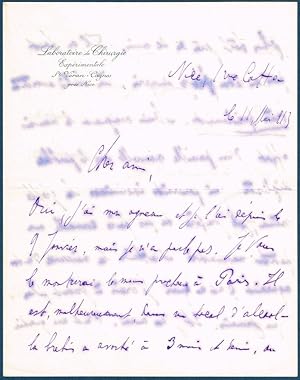 Laboratoire de Chirurgie
Expérimentale
près Nice
Nice,
le 11 Mai
Cher ami,
Oui, j'ai mon agneau et je l'ai depuis le
9 Janvier, mais je n'en parle pas. Je vous
le montrerai le mois prochain à Paris. Il
est, malheureusement dans un bocal d'alcool -
la brebis a avorté à 3 mois et demi, au